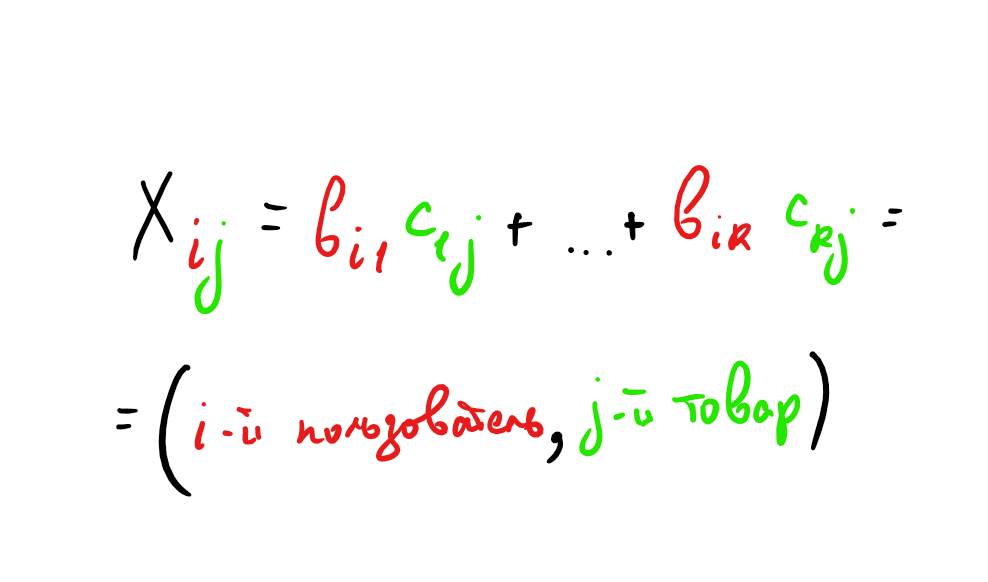 X_{ij} = b_{i1} c_{1j} + ... + b_{ik} c_{kj} =
= (i-й пользователь, j-й товар)